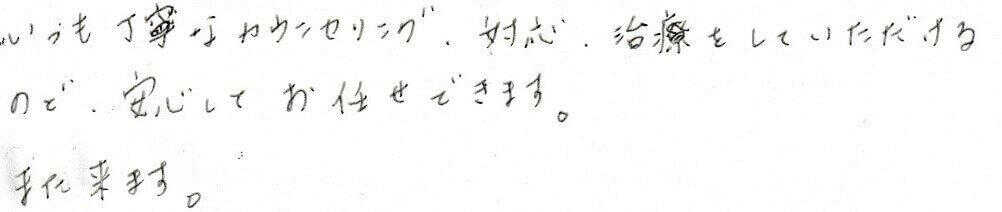 いつも丁寧なカウンセリング、対応、治療をしていただける
ので、安心してお任せできます。
また来ます。